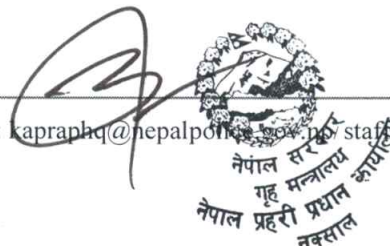 kapraphq@nepalpolice.gov.np/staff
नेपाल सरकार
गृह मन्त्रालय
नेपाल प्रहरी प्रधान कार्यालय
नक्साल